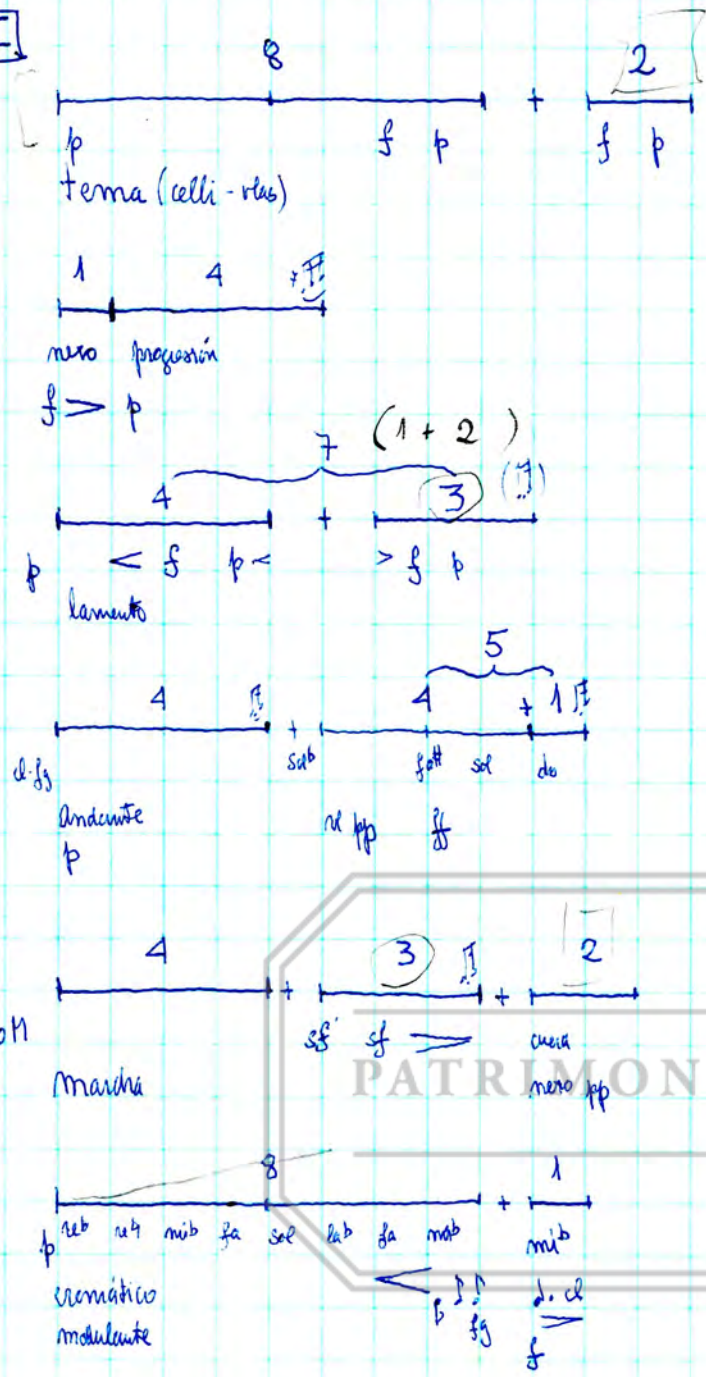 E
8 2
p f p + f p
tema (celli - vlas)
1 4 +
nexo progresión
f > p
7 (1 + 2)
4 3
p < f p < + > f p
lamento
5
4 4 + 1
cl. fg + sab fa# sol do
Andante pp ff
p
4 3 2
+ sf sf > +
marcha coda
nexo pp
PATRIMON
8 1
p reb re♮ mib fa sol lab fa mib + mib
cromático < p fg cl >
modulante f